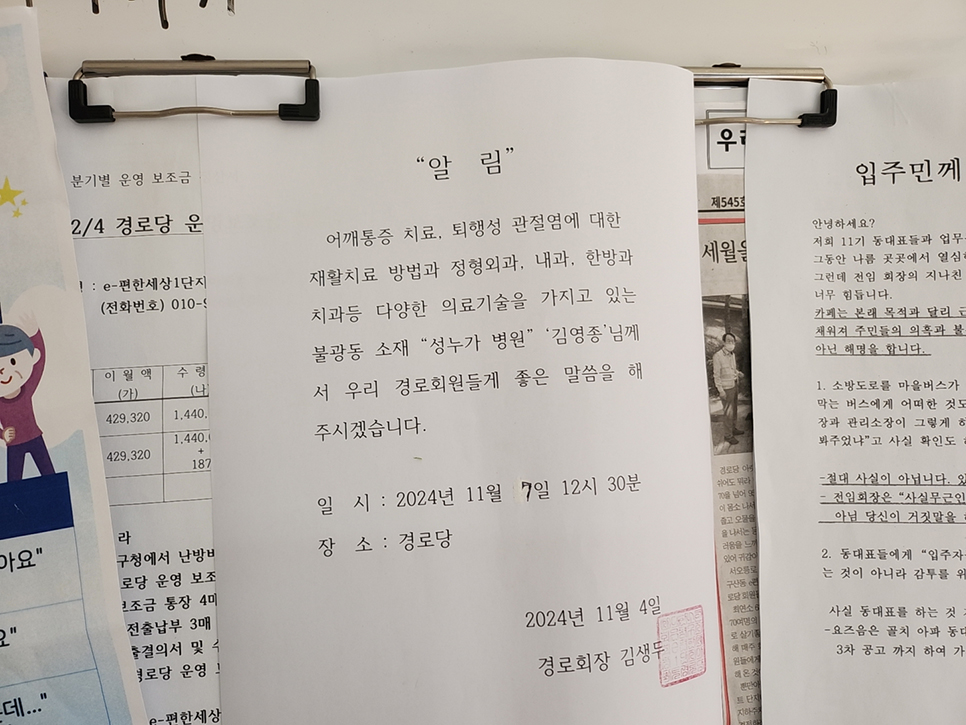 "알 림"
어깨통증 치료, 퇴행성 관절염에 대한
재활치료 방법과 정형외과, 내과, 한방과
치과등 다양한 의료기술을 가지고 있는
불광동 소재 "성누가 병원" '김영종'님께
서 우리 경로회원들게 좋은 말씀을 해
주시겠습니다.
일 시 : 2024년 11월 7일 12시 30분
장 소 : 경로당
2024년 11월 4일
경로회장 김생두
분기별 운영 보조금
2/4 경로당 운
: e-편한세상1단지
(전화번호) 010-9
이 월 액
(가)
수 령
(나
429,320
1,440,
429,320
1,440,
+
187
라
구청에서 난방비
로당 운영 보조
보조금 통장 4매
전출납부 3매
출결의서 및
경로당 운영
e-편한세상
아요"
요"
데..."
우리
제545호
세월을
입주민께
안녕하세요?
저희 11기 동대표들과 업무
그동안 나름 곳곳에서 열심히
그런데 전임 회장의 지나친
너무 힘듭니다.
카페는 본래 목적과 달리 근
채워져 주민들의 의혹과 불
아닌 해명을 합니다.
1. 소방도로를 마을버스가
막는 버스에게 어떠한 것도
장과 관리소장이 그렇게 하
봐주었냐"고 사실 확인도
-절대 사실이 아닙니다. 있
- 전임회장은 "사실무근인
아님 당신이 거짓말을
2. 동대표들에게 "입주자
는 것이 아니라 감투를 위
사실 동대표를 하는 것
-요즈음은 골치 아파 동대
3차 공고 까지 하여 가